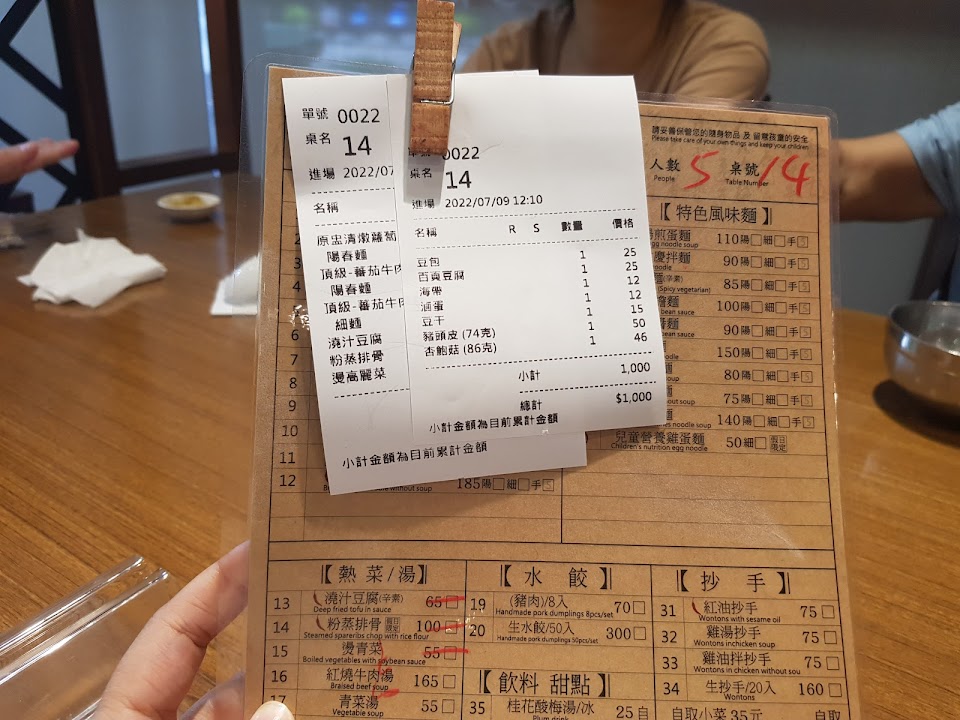 單號 0022
桌名 14
進場 2022/07
名稱
原忠清燉蘿蔔
陽春麵
頂級-蕃茄牛肉
陽春麵
頂級-蕃茄牛肉
細麵
澆汁豆腐
粉蒸排骨
燙高麗菜
小計金額為目前累計金額
單號 0022
桌名 14
進場 2022/07/09 12:10
名稱 R S 數量 價格
豆包 1 25
百頁豆腐 1 25
海帶 1 12
滷蛋 1 12
豆干 1 15
豬頭皮 (74克) 1 50
杏鮑菇 (86克) 1 46
小計 1,000
總計 $1,000
小計金額為目前累計金額
請妥善保管您的隨身物品 及 留意孩童的安全
Please take care of your own things and keep your children
人數 5 桌號 14
People Table Number
【特色風味麵】
煎蛋麵 110陽□細□手
egg noodle soup
慶拌麵 90陽□細□手
noodle
(辛素) 85陽□細□手
(Spicy vegetarian)
麵 100陽□細□手
bean sauce
麵 90陽□細□手
150陽□細□手
noodle
80陽□細□手
75陽□細□手
without soup
140陽□細□手
noodle soup
兒童營養雞蛋麵 50細□ 假日限定
Children's nutrition egg noodle
2
3
4
6
7
8
9
10
11
12 185陽□細□手
noodle without soup
【熱菜/湯】
13 澆汁豆腐(辛素) 65□
Deep fried tofu in sauce
14 粉蒸排骨 假日限定 100□
Steamed spareribs chop with rice flour
15 燙青菜 55□
Boiled vegetables with soybean sauce
16 紅燒牛肉湯 165□
Braised beef soup
17 青菜湯 55□
Vegetable soup
【水餃】
19 (豬肉)/8入 70□
Handmade pork dumplings 8pcs/set
20 生水餃/50入 300□
Handmade pork dumplings 50pcs/set
【飲料 甜點】
35 桂花酸梅湯/冰 25 自
Plum drink
【抄手】
31 紅油抄手 75□
Wontons with sesame oil
32 雞湯抄手 75□
Wontons inchicken soup
33 雞油拌抄手 75□
Wontons in chicken without sou
34 生抄手/20入 160□
Wontons
自取小菜 35元 自取